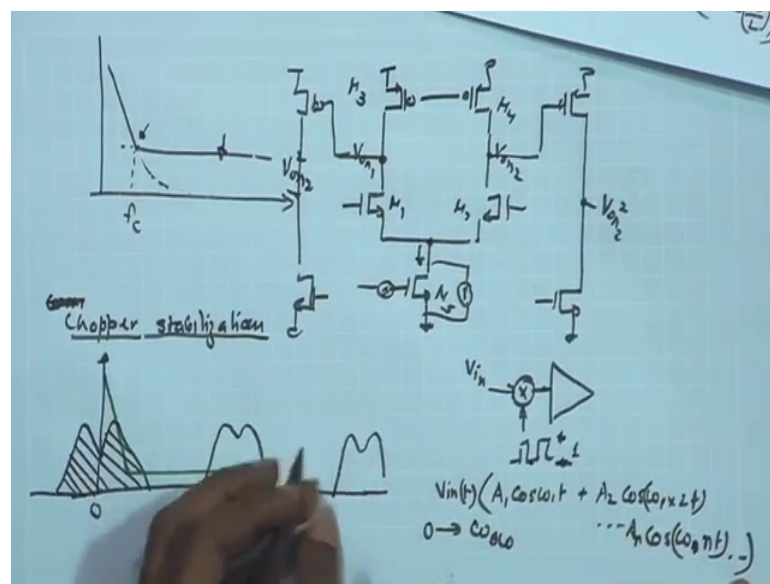 M3
M4
Von1
Von2
Von2²
Von2²
M1
M2
fc
Chopper stabilization
Vin
X
0
Vin(t)(A1 cosω1t + A2 cos(ω1x2t)
0 → ω
...An cos(ω nt)...)